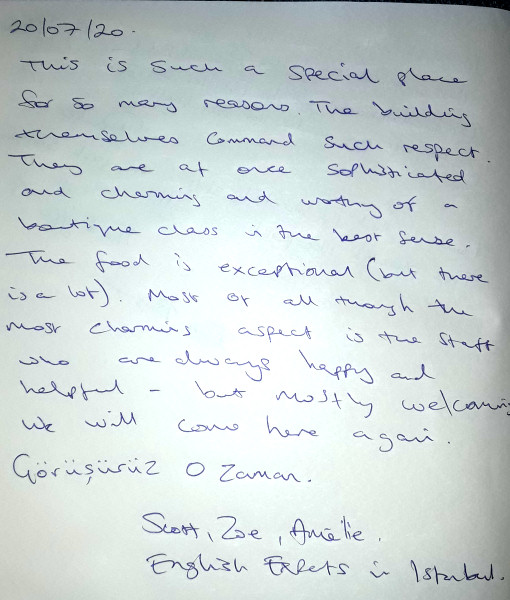 20/07/20.
This is such a special place
for so many reasons. The building
themselves command such respect.
They are at once sophisticated
and charming and worthy of a
boutique class in the best sense.
The food is exceptional (but there
is a lot). Most of all though the
most charming aspect is the staff
who are always happy and
helpful - but mostly welcoming
We will come here again.
Görüşürüz O Zaman.
Scott, Zoe, Amélie.
English Expats in Istanbul.